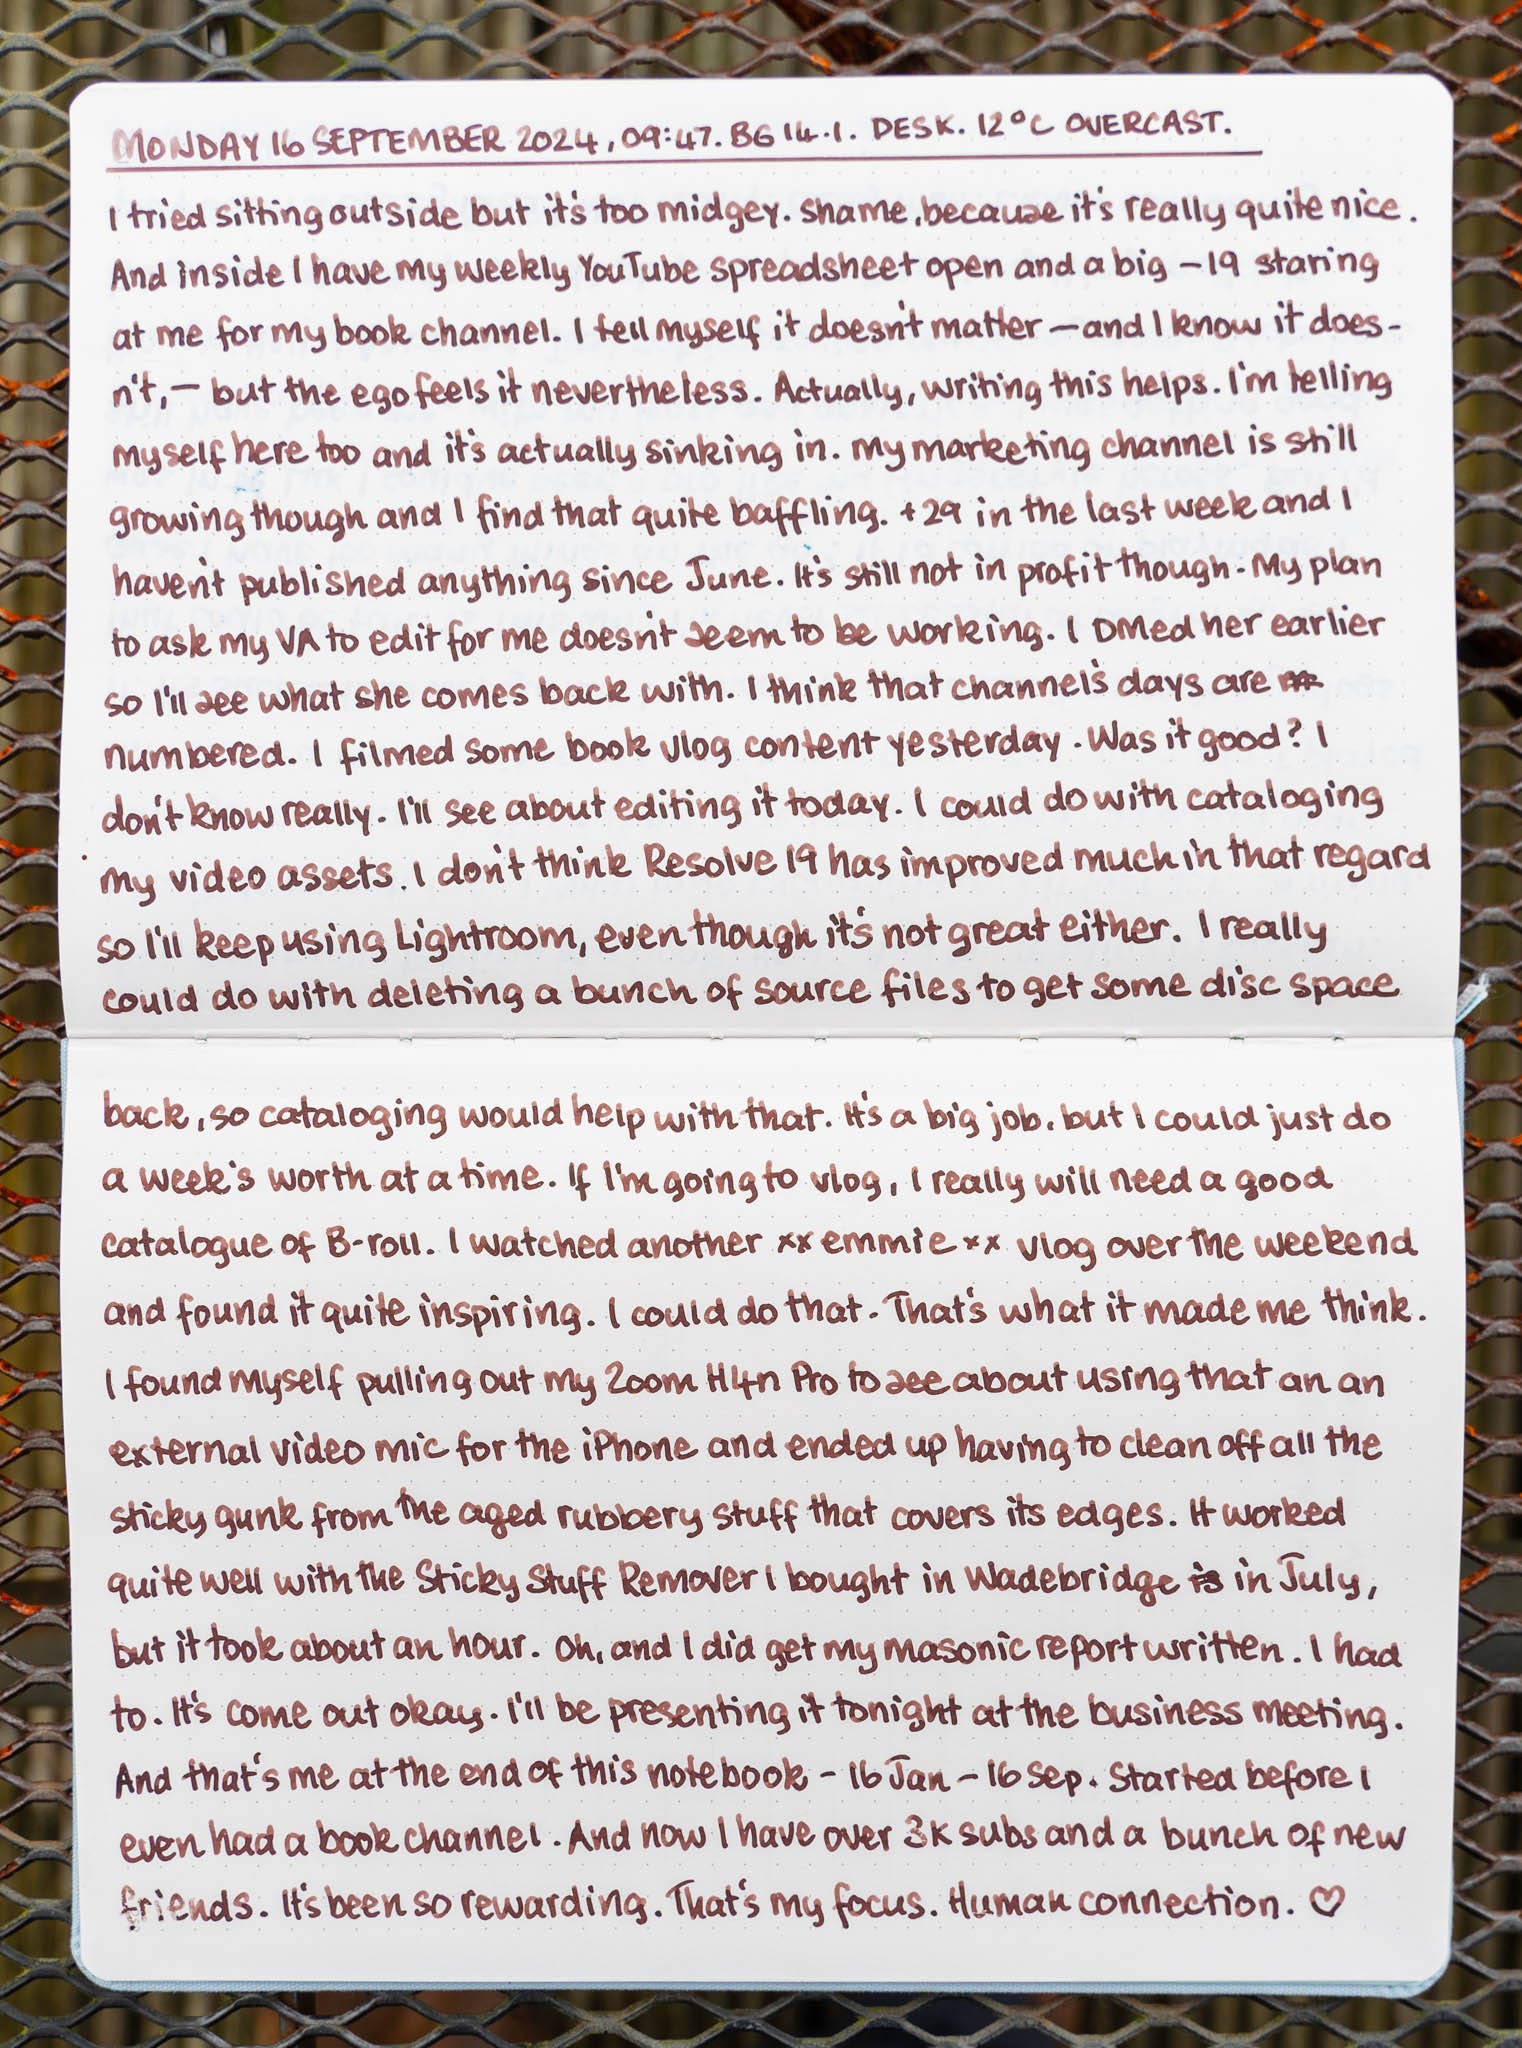 MONDAY 16 SEPTEMBER 2024, 09:47. BG 14.1. DESK. 12°C OVERCAST.
I tried sitting outside but it's too midgey. Shame, because it's really quite nice.
And inside I have my weekly YouTube spreadsheet open and a big -19 staring
at me for my book channel. I tell myself it doesn't matter — and I know it does-
n't, — but the ego feels it nevertheless. Actually, writing this helps. I'm telling
myself here too and it's actually sinking in. My marketing channel is still
growing though and I find that quite baffling. +29 in the last week and I
haven't published anything since June. It's still not in profit though. My plan
to ask my VA to edit for me doesn't seem to be working. I DMed her earlier
so I'll see what she comes back with. I think that channel's days are
numbered. I filmed some book vlog content yesterday. Was it good? I
don't know really. I'll see about editing it today. I could do with cataloging
my video assets. I don't think Resolve 19 has improved much in that regard
so I'll keep using Lightroom, even though it's not great either. I really
could do with deleting a bunch of source files to get some disc space
back, so cataloging would help with that. It's a big job, but I could just do
a week's worth at a time. If I'm going to vlog, I really will need a good
catalogue of B-roll. I watched another xx emmie xx vlog over the weekend
and found it quite inspiring. I could do that. That's what it made me think.
I found myself pulling out my Zoom H4n Pro to see about using that an an
external video mic for the iPhone and ended up having to clean off all the
sticky gunk from the aged rubbery stuff that covers its edges. It worked
quite well with the Sticky Stuff Remover I bought in Wadebridge is in July,
but it took about an hour. Oh, and I did get my masonic report written. I had
to. It's come out okay. I'll be presenting it tonight at the business meeting.
And that's me at the end of this notebook - 16 Jan - 16 Sep. Started before I
even had a book channel. And now I have over 3K subs and a bunch of new
friends. It's been so rewarding. That's my focus. Human connection. ♡